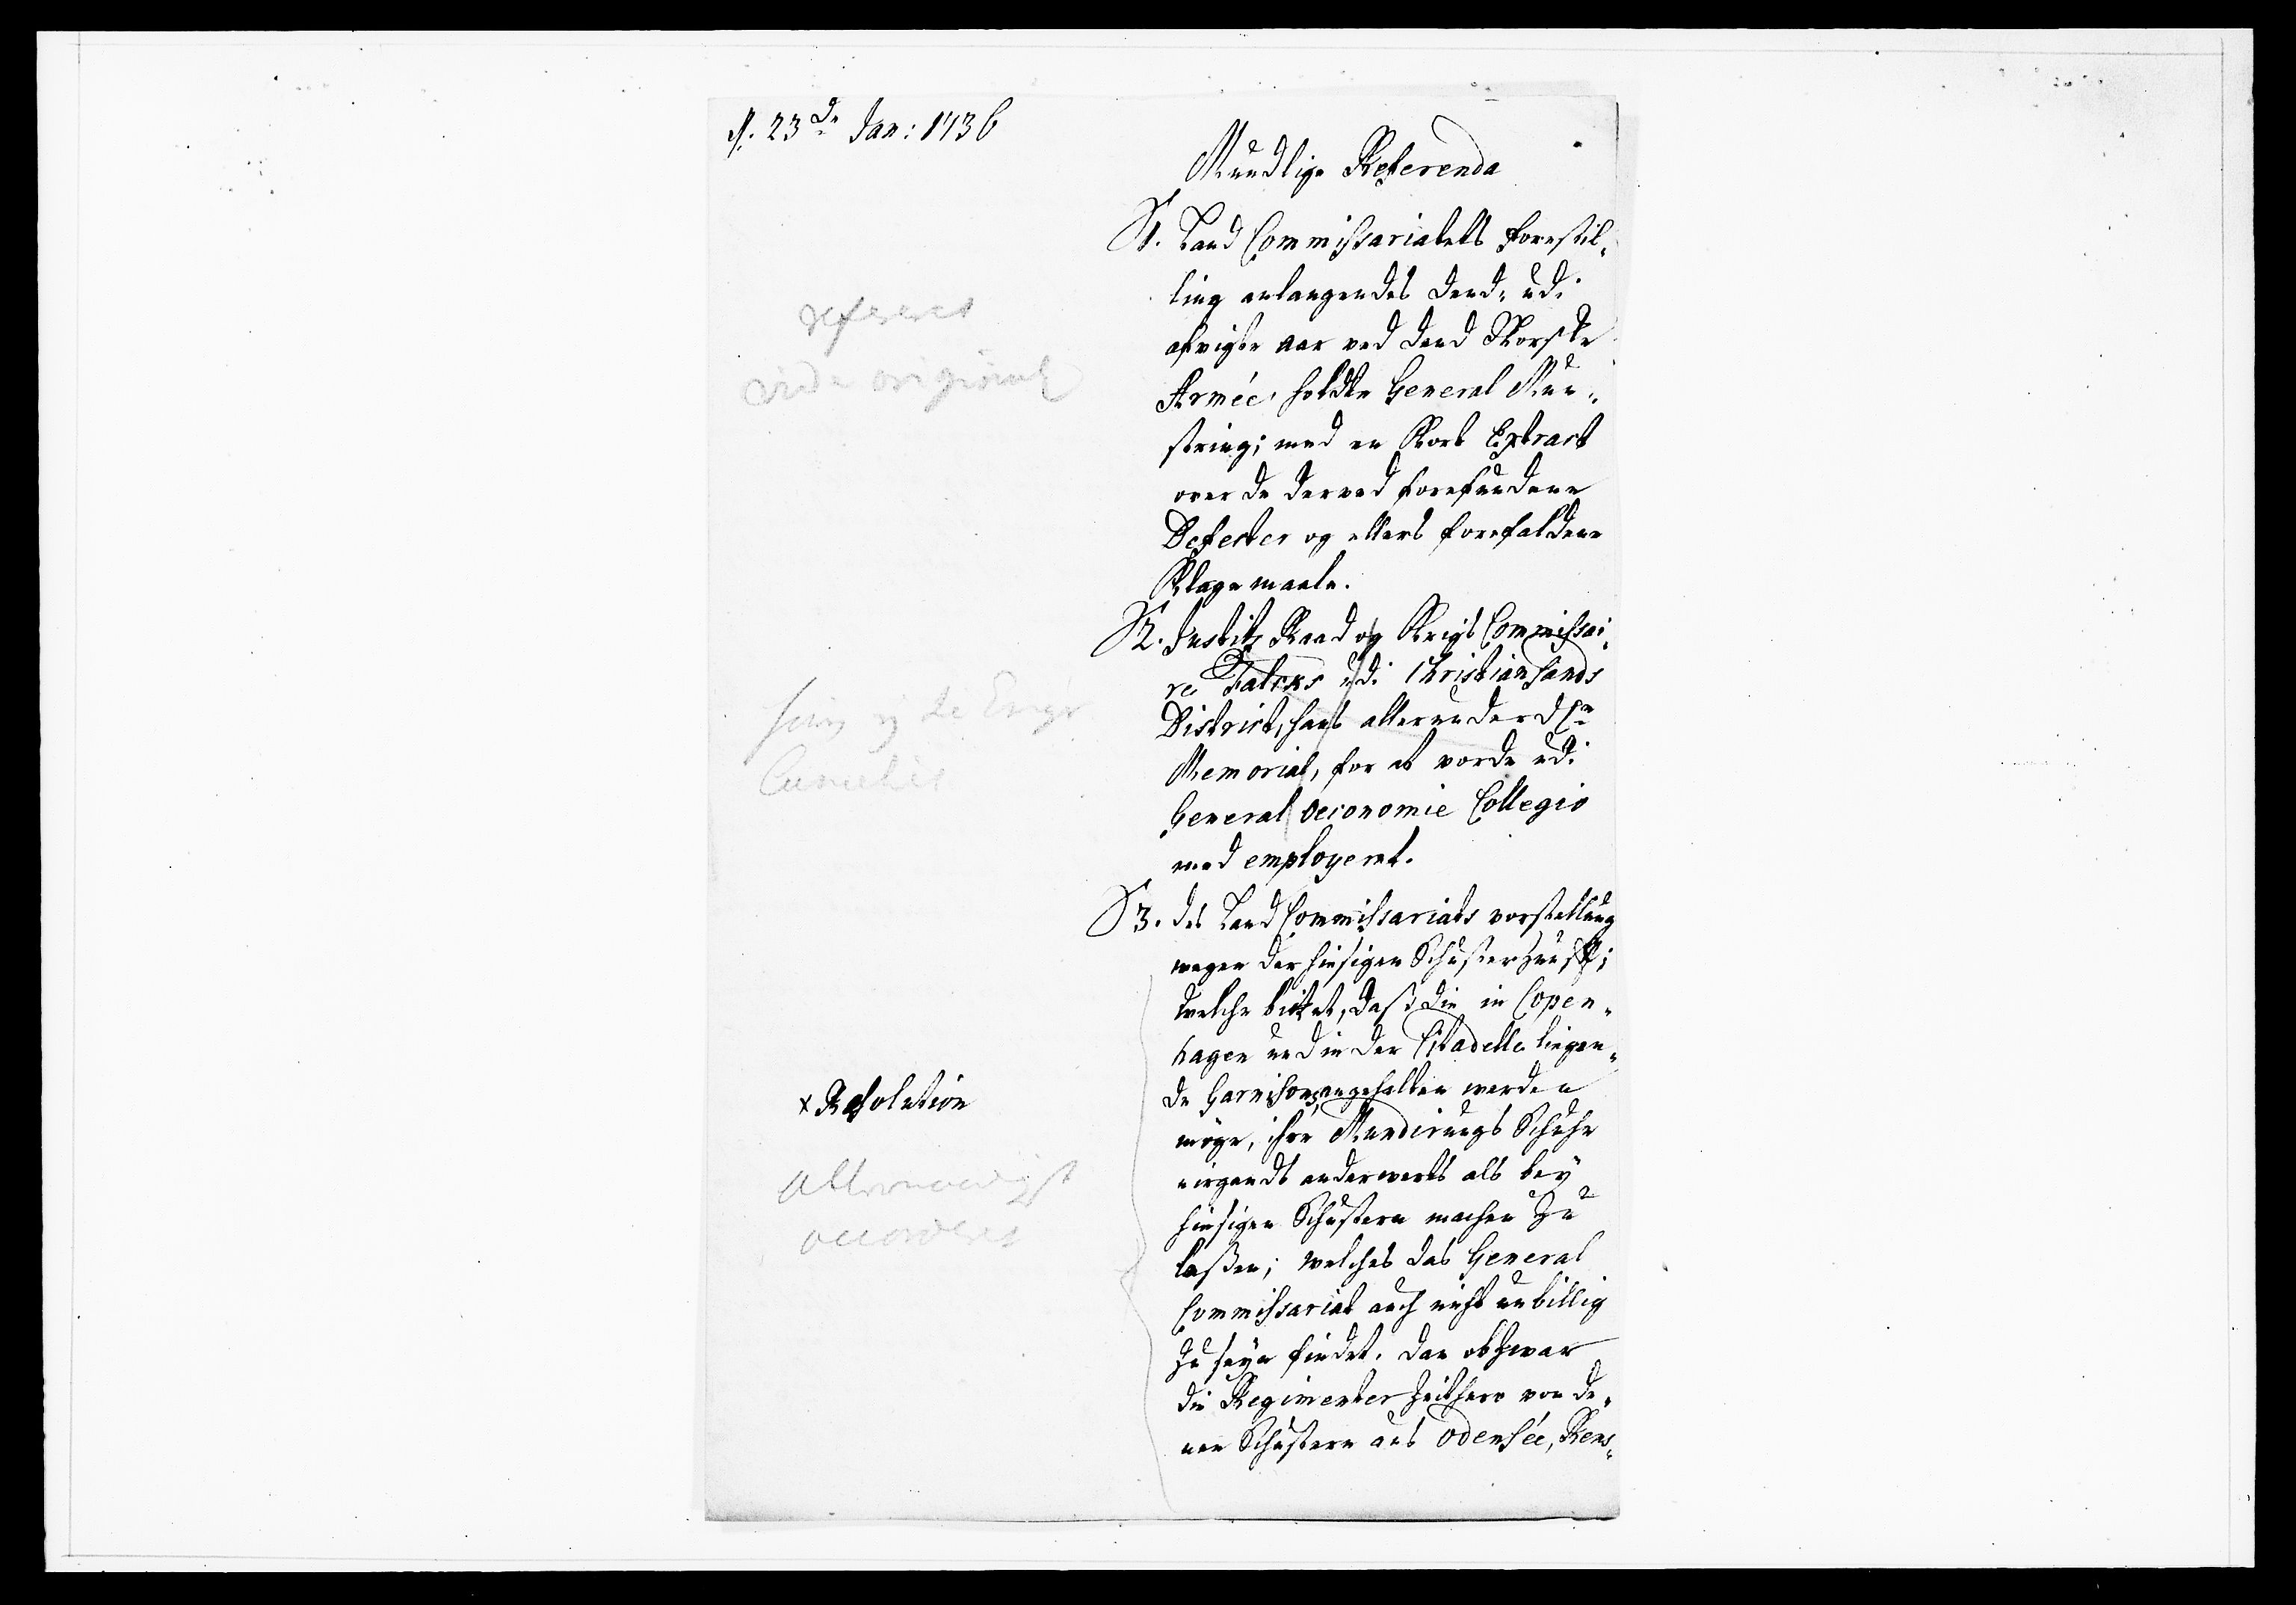 d. 23de Jan: 1736
Mundlige Referenda
§1. Land Commissariatets forestil¬
ling anlangendes dend, udi
afvigte aar ved dend Norske
Armée holdte General Mun¬
string; med en Kort Extract
over de derved forefundene
Defecter og ellers forefaldene
Klagemaale.
refereret
vide original
§2. Justitz Raad og Krigs Commissai¬
re Falcks udi Christiansands
District, hans allerunderdste
Memorial, for at vorde udi
General Oeconomie Collegio
med employeret.
§3. des Land Commissariats vorstellung
wegen der hiesigen Schuster Zunfft;
welche bittet, daß die in Copen¬
hagen und in der Citadelle liegen¬
de Garnisons angehalten werden
möge, ihre Mundirungs Schuhe
nirgendt anderwerts als bey
hiesigen Schustern machen zu
laßen; welches das General
Commissariat auch nicht unbillig
zu seyn findet. dan obzwar
die Regimenter zeithero von de¬
nen Schustern aus Odensée, Rens¬
x Resolution
allernaadigst
accorderet